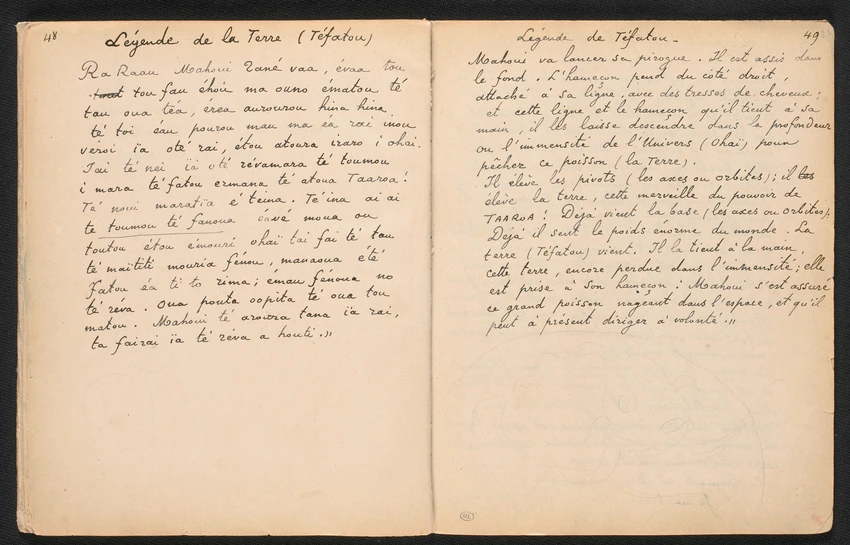 48
Légende de la Terre (Téfatou)
Ra Raau Mahoui Tané vaa, évaa tou
tou fau éhou ma ouno ématou té
tau oua téa, érea aurourou hina hina
té toi éau pourou mau ma éa rai mou
veroi ïa oté rai, étou atoura iraro i ohai.
Tai té nei ïa oté révamara té toumou
i mara té fatou ermana té atoua Taaroa!
Té noui maratïa é'teina. Té ina ai ai
te toumou té fanoua oavé moua ou
toutou étou émouri ohaï tai fai té tau
té maïtèti mouria fénou, manaoua été
Fatou éa ti to rima; émau fénoua no
té réva. Oua pouta oopita té oua tou
matou. Mahoui té aroura tana ïa rai,
ta fairai ïa té réva a houti.»
49
Légende de Téfatou_
Mahoui va lancer sa pirogue. Il est assis dans
le fond. L'hameçon pend du côté droit,
attaché à sa ligne, avec des tresses de cheveux;
et cette ligne et le hameçon qu'il tient à sa
main, il les laisse descendre dans la profondeur
ou l'immensité de l'Univers (Ohai) pour
pêcher ce poisson (la Terre).
Il élève les pivots (les axes ou orbites); il
élève la terre, cette merveille du pouvoir de
TAAROA! Déjà vient la base (les axes ou orbites).
Déjà il sent le poids énorme du monde. La
terre (Téfatou) vient. Il la tient à la main,
cette terre, encore perdue dans l'immensité; elle
est prise à son hameçon: Mahoui s'est assuré
ce grand poisson nageant dans l'espace, et qu'il
peut à présent diriger à volonté.»